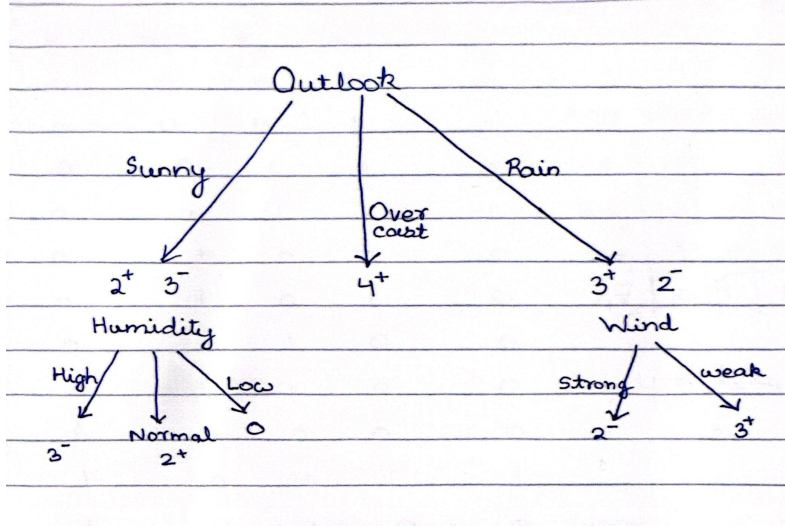 Outlook
Sunny
Rain
Over
cast
2⁺ 3⁻
4⁺
3⁺ 2⁻
Humidity
Wind
High
Low
Strong
weak
3⁻
Normal
2⁺
0
2⁻
3⁺